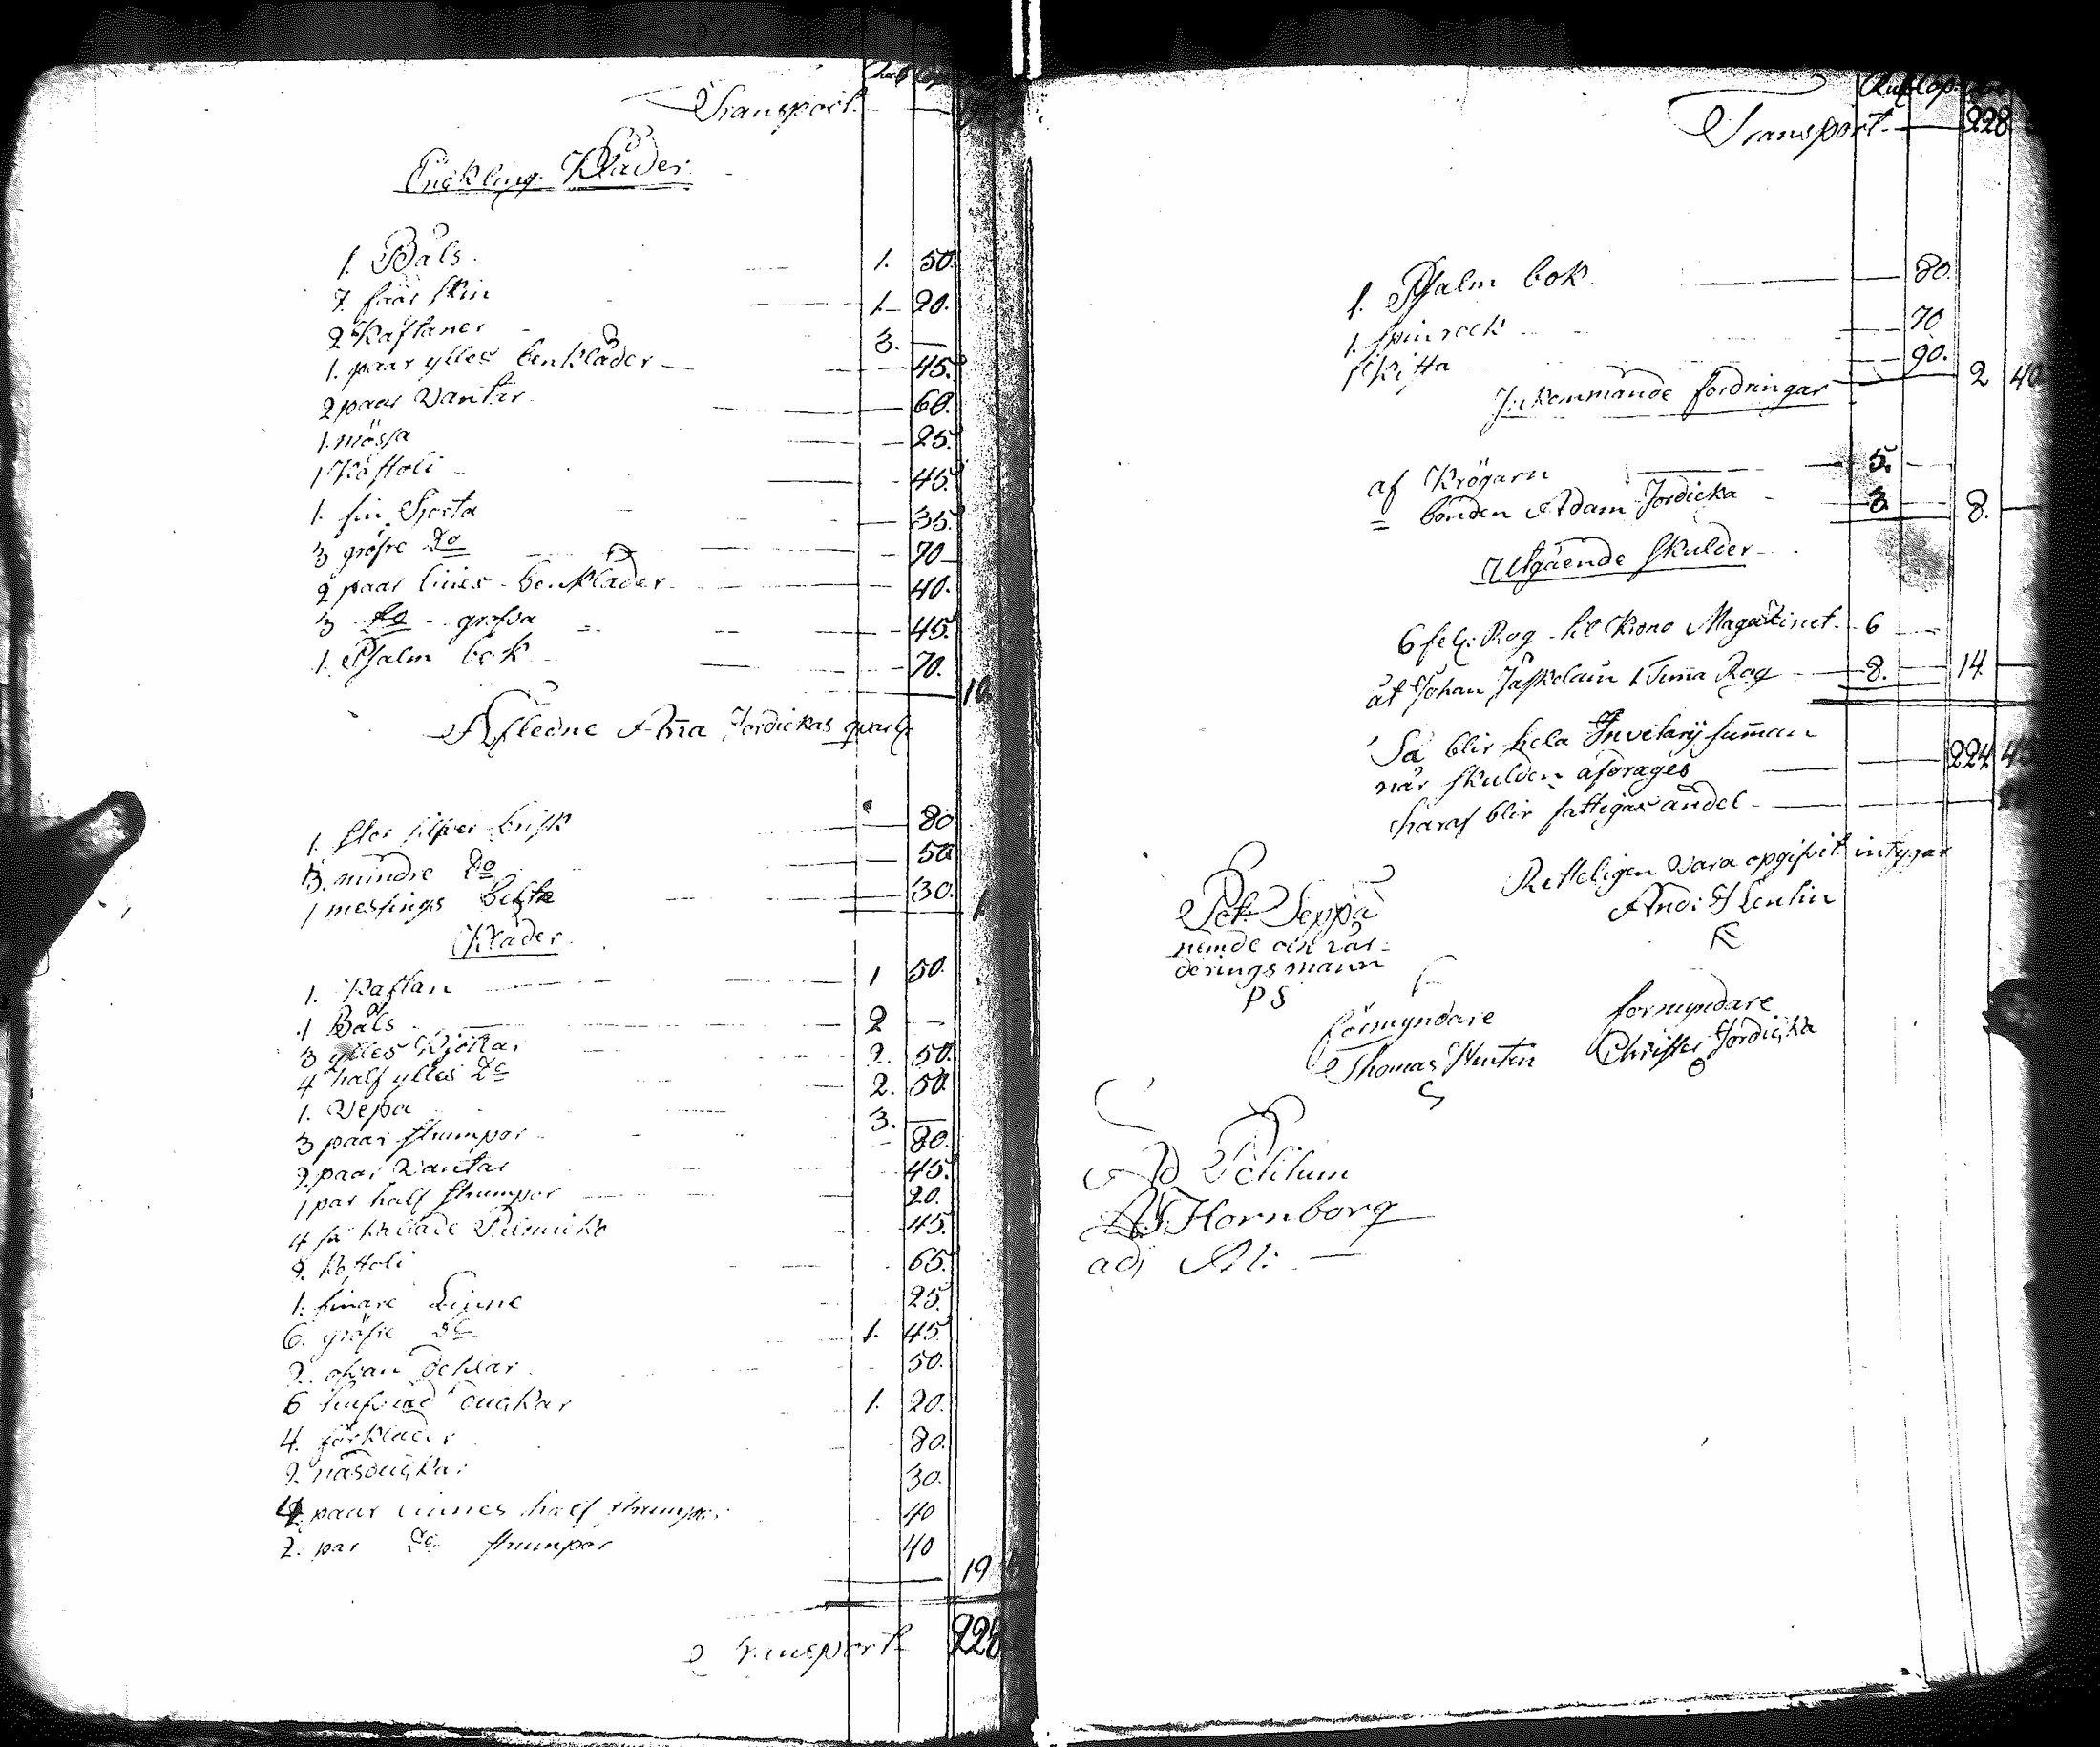 Rub Cop
Transport.
Enckling Kläder
1. Päls. 1. 50.
7. fåår skin 1. 20.
2 Kaftaner 3. —
1. paar ylles benkläder 45.
2 paar Vantar 60.
1. mössa 25.
1 Kåftoli 45.
1. fin Sjorta 35.
3 gröfre Do 70
2 paar linnes benkläder 40.
3 Do grofva 45.
1. Psalm bok 70.
10
Afledne Anna Jordickas qvarl:
1. stor silfver brisk 80
3. mindre Do 50
1 messings belte 30.
1.
Kläder.
1. Kaftan 1 50.
1 Päls 2 —
3 ylles Kjortlar 2. 50.
4 half ylles Do 2. 50.
1. Vepa 3. —
3 paar strumpor 80.
2 paar Vantar 45.
1 par half strumpor 20.
4 så kallade 45.
2. Kåftoli 65.
1. finare Linne 25.
6. gröfre Do 1. 45
2. ofvan 50.
6 hufvud dugkar 1. 20.
4. förkläder 80.
2. näsdugkar 30.
4 paar linnes half strumpor 40
2. par Do strumpor 40
19
Transport 228
Rub Cop.
Transport. 228
1. Psalm bok 80.
1. spinrock 70
1 Kista 90.
2 40
Inkommande fordringar
af Krögarn 5.
= bonden Adam Jordicka 3.
8.
Utgående skulder
6 fel: Rog til Krono Magazinet. 6
åt Johan Jäskeläin 1 Tunna Rog 8. 14
Så blir hela Invetarij summan
när skulden afdrages 224 45
häraf blir fattigas andel
Retteligen vara opgifvit intygar
And: Hlentin
Pet Seppä
nemde och vär-
derings mann
P S
förmyndare formyndare
Thomas Hentin Christer Jordicka
Ad Petitum
A. J. Hornborg
adj